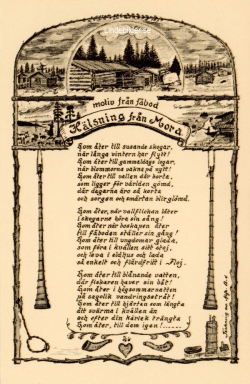 Lindebilder.se
motiv från fäbod
Hälsning från Moora
Hom åter till susande skogar,
när långa vintern har flytt!
Hom åter till gammaldags logar,
när blommorna vakna på nytt!
Hom åter till vallen där borta,
som ligger för världen gömd,
där dagarna äro så korta
och sorgen och smärtan blir glömd.
Hom åter, när vallflickan låter
i skogarne höra sin sång!
Hom åter när boskapen åter
till fäboden ställer sin gång!
Hom åter till ungdomar glada,
som fira i kvällen sitt stoj,
och leva i eldhus och lada
så enkelt och flärdfritt i
Hom åter till blånande vatten,
där fiskaren haver sin båt!
Hom åter i högsommarnatten
på sagolik vandringsstråt!
Hom åter till hjärtan som längta
att svärma i kvällen än
och efter din kärlek trängta
Hom åter, till dom igen!